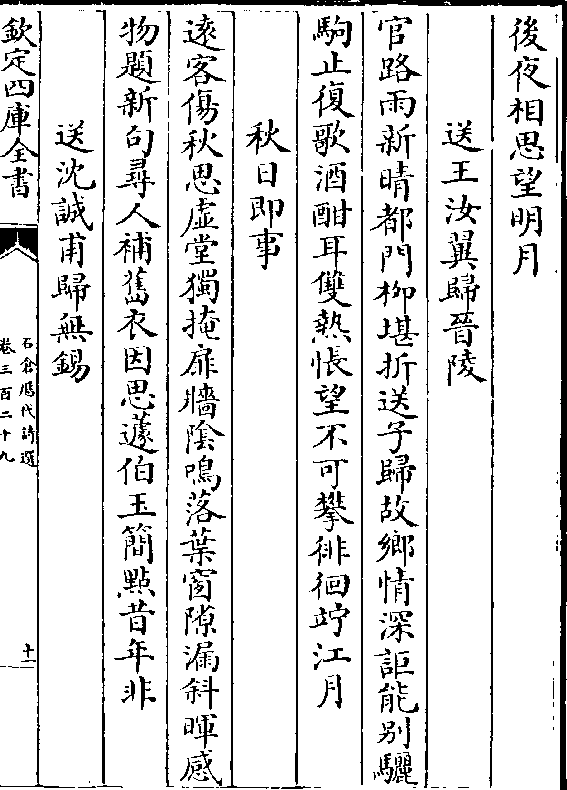 後夜相思望明月
送王汝翼歸晉陵
官路雨新晴都門栁堪折送子歸故鄉情深詎能别驪
駒止復歌酒酣耳雙熱悵望不可攀徘徊竚江月
秋日即事
逺客傷秋思虛堂獨掩扉牆陰鳴落葉窗隙漏斜暉感
物題新句尋人補舊衣因思蘧伯玉簡點昔年非
送沈誠甫歸無錫
欽定四庫全書
石倉歴代詩選
卷三百二十九
十一